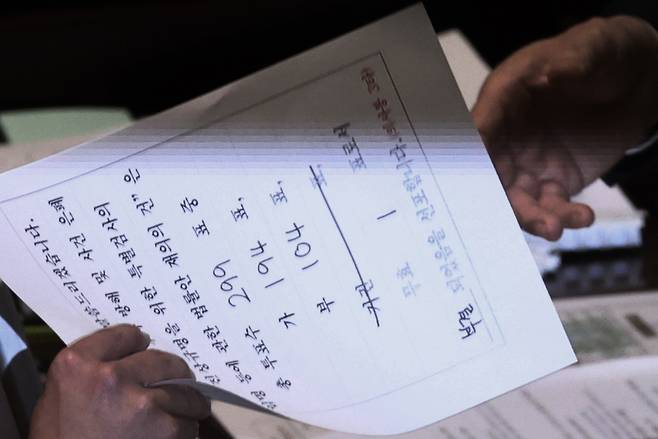 말씀드리겠습니다.
방해 및 사건 은폐
진상규명을 위한 특별검사의
임명 등에 관한 법률안 재의의 건" 은
총 투표수 299 표 중
가 194 표,
부 104 표,
기권 표,
무효 1 표로서
부결 되었음을 선포합니다.